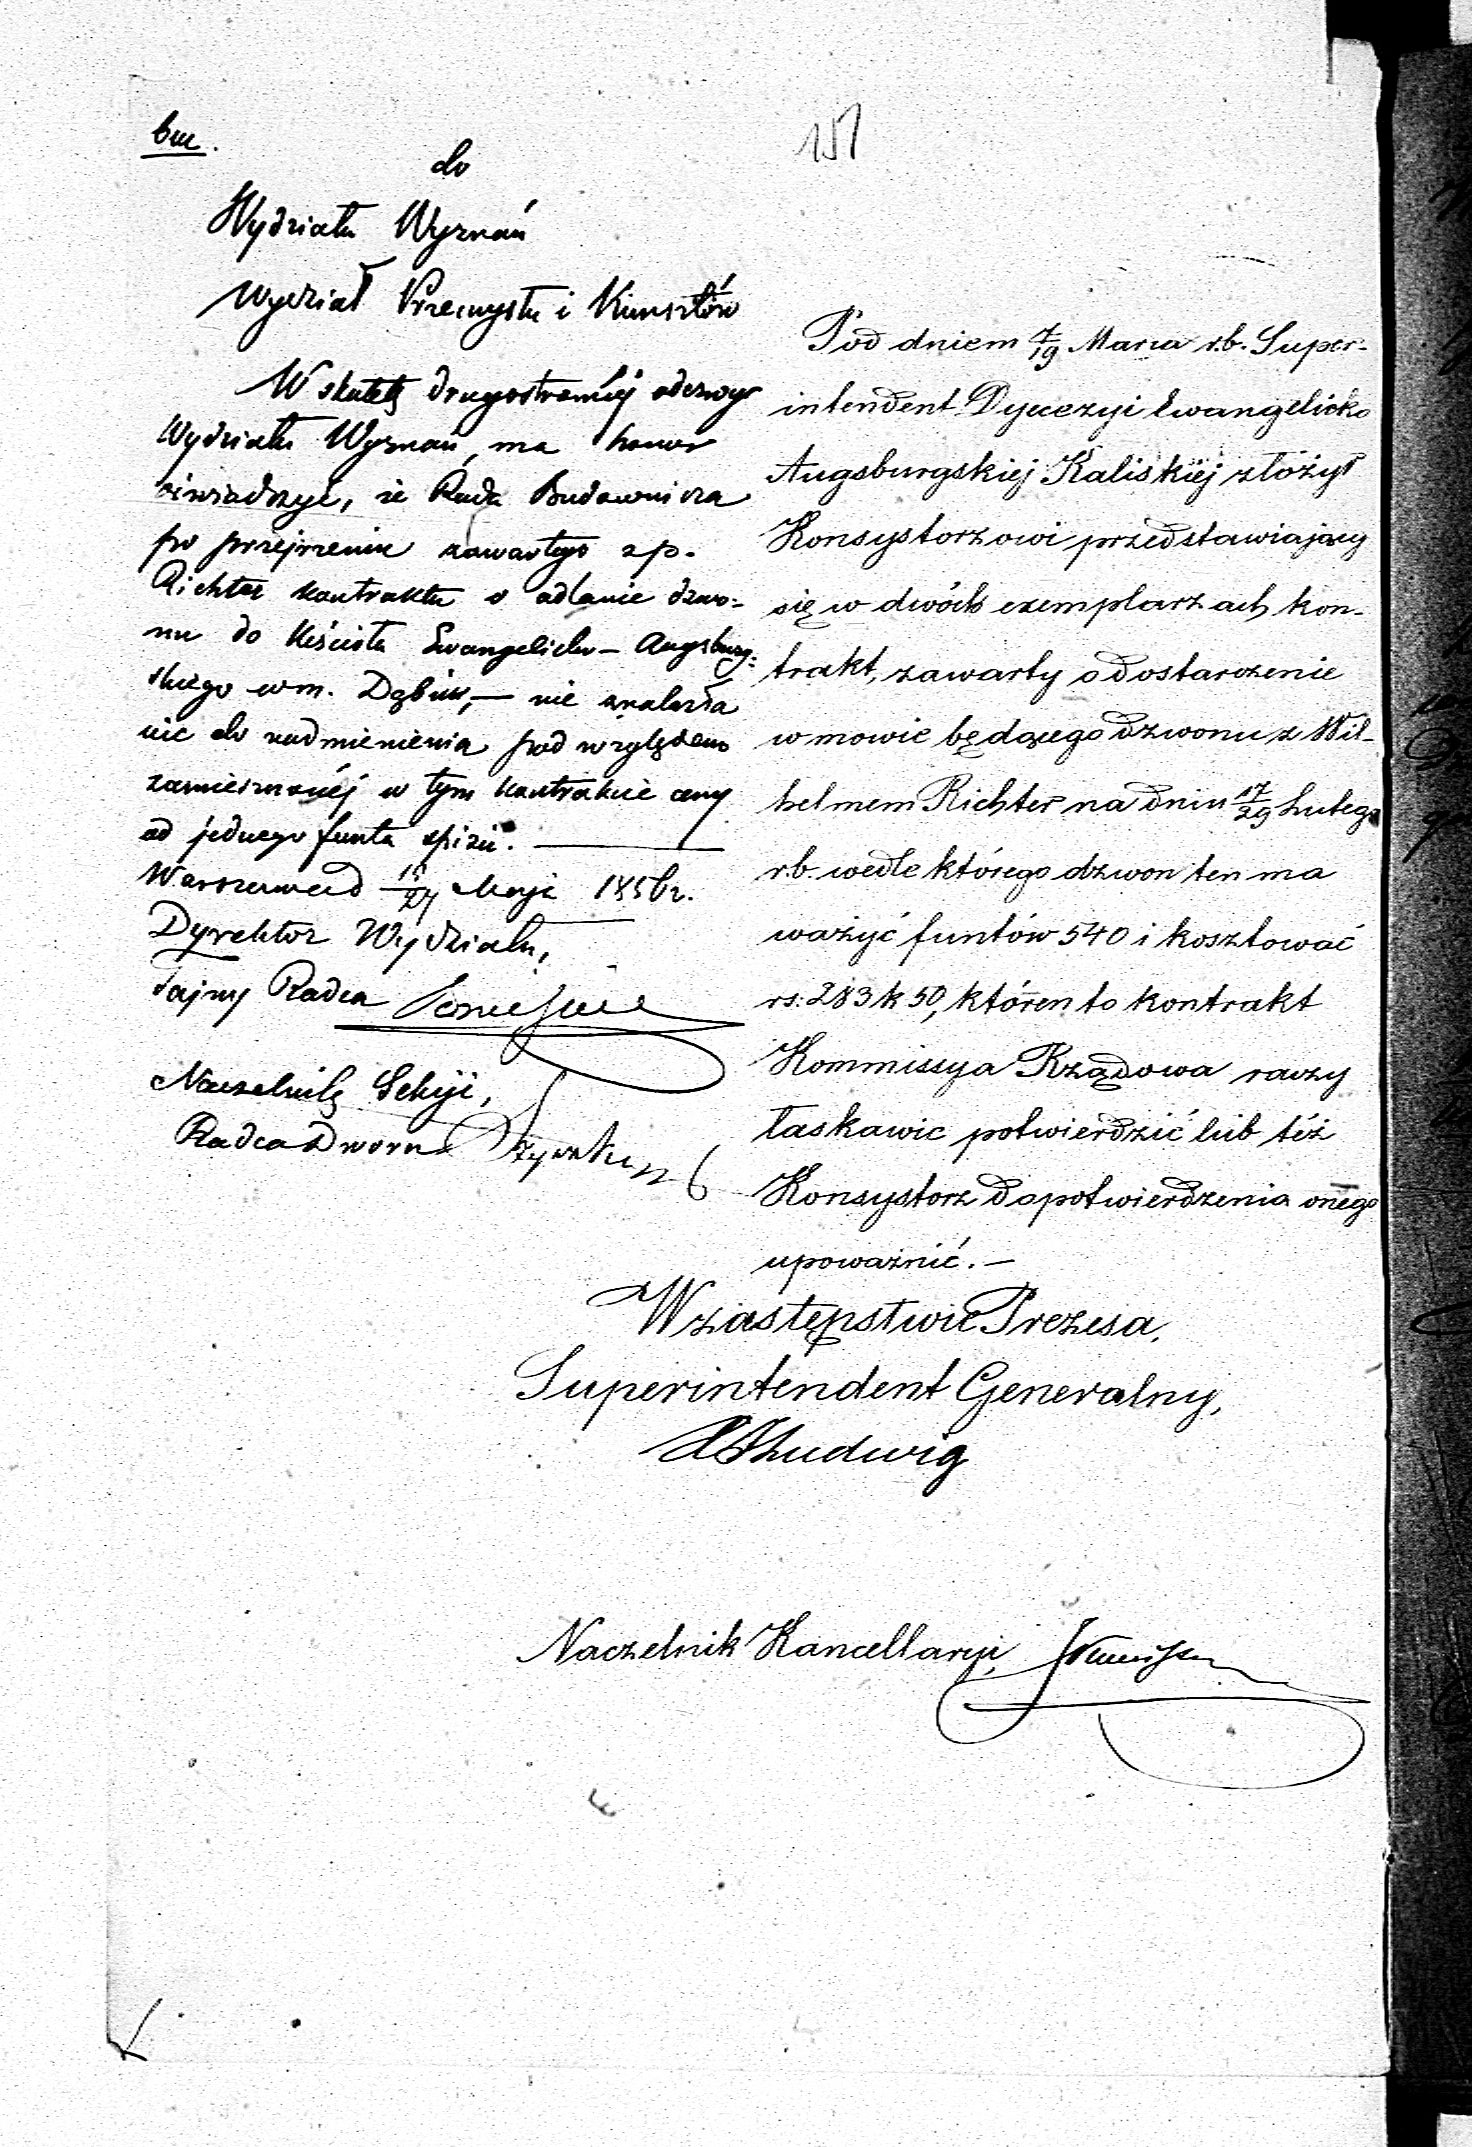 151
do
Wydziału Wyznań
Wydział Przemysłu i Kunsztów
W skutek drugostronnéj odezwy
Wydziału Wyznań, ma honor
oświadczyć, że Rada Budownicza
po przejrzeniu zawartego z p.
Richter kontraktu o odlanie dzwo-
nu do Kościoła Ewangelicko-Augsburg-
skiego w m. Dąbiu, — nie znalazła
nic do nadmienienia pod względem
zamieszczonéj w tym kontrakcie ceny
od jednego funta spiżu. —
Warszawa d Maja 1856 r.
Dyrektor Wydziału,
Tajny Radca
Naczelnik Sekcji,
Radca Dworu
Pod dniem 7/19 Marca r.b. Super-
intendent Dyecezyi Ewangelicko
Augsburgskiéj Kaliskiéj złożył
Konsystorzowi przedstawiający
się w dwóch exemplarzach kon-
trakt, zawarty o dostarczenie
w mowie będącego dzwonu z Wil-
helmem Richter na dniu 17/29 Lutego
r.b. wedle którego dzwon ten ma
ważyć funtów 540 i kosztować
rs: 283 k 50, któren to kontrakt
Kommissya Rządowa raczy
łaskawie potwierdzić lub téż
Konsystorz do potwierdzenia onego
upoważnić. —
W zastępstwie Prezesa,
Superintendent Generalny,
Ludwig
Naczelnik Kancellaryi,